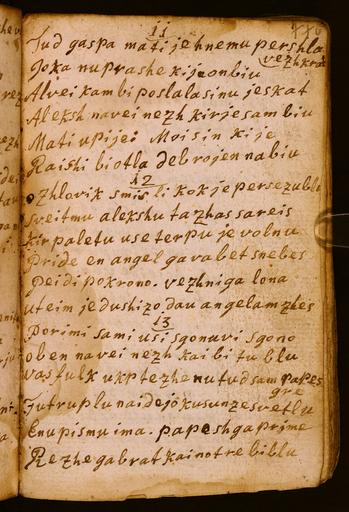 11
Tud gaspa mati je hnemu pershla
vezhkrat
Joka nuprashe kijaonbiu
Alvei kambi poslalasinu jeskat
Aleksh navei nezh kirje sam biu
Mati upije: Moi sin kije
Raishi bi otla deb rojen nabiu
12
ozhlovik smis li kok je persezublo
sveitmu alekshu ta zhas sareis
kir paletu use terpu je volnu
Pride en angel gavabet snebes
peidi pokrono. vezhniga lona
uteim jedushizo dau angelam zhes
13
Dorimi sami usi sgonuvi sgono
oben navei nezh kai bi tu blu
vas fulk ukp tezhe nu tud sam papes
gre
Jutruplu naidejo kusunzesvetlu
Enu pismu ima. papesh ga prime
Rezhe ga brat kai notre biblu